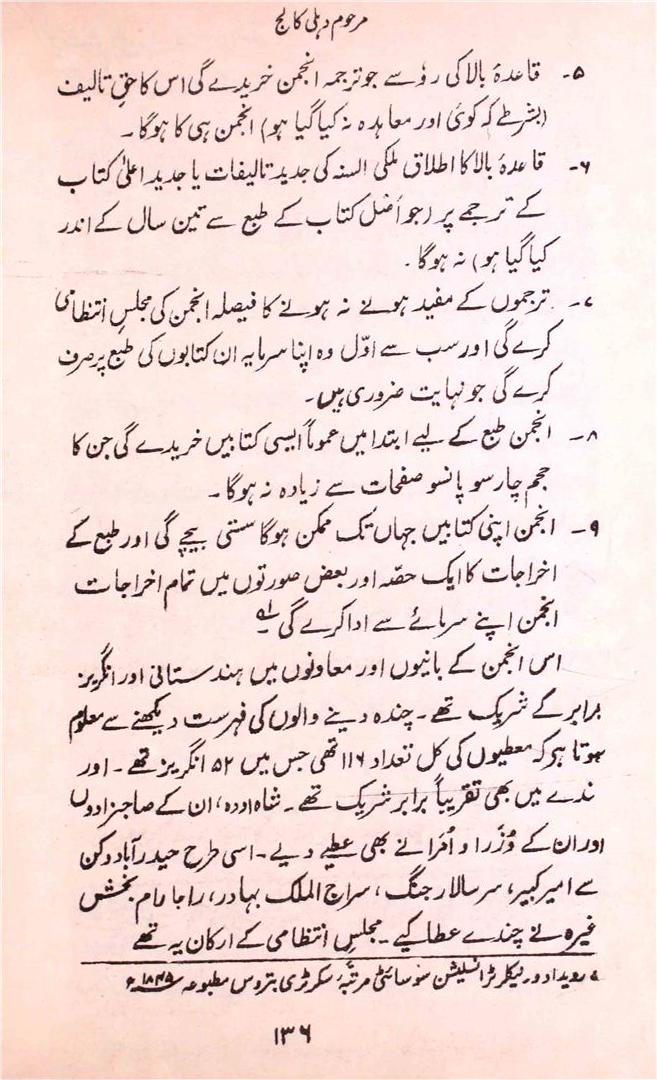 مرحوم دہلی کالج
۵۔ قاعدۂ بالا کی رو سے جو ترجمہ انجمن خریدے گی اس کا حقِ تالیف
(بشرطے کہ کوئی اور معاہدہ نہ کیا گیا ہو) انجمن ہی کا ہوگا۔
۶۔ قاعدۂ بالا کا اطلاق ملکی السنہ کی جدید تالیفات یا جدید اعلیٰ کتاب
کے ترجمے پر (جو اصل کتاب کے طبع سے تین سال کے اندر
کیا گیا ہو) نہ ہوگا۔
۷۔ ترجموں کے مفید ہونے نہ ہونے کا فیصلہ انجمن کی مجلسِ انتظامی
کرے گی اور سب سے اوّل وہ اپنا سرمایہ ان کتابوں کی طبع پر صرف
کرے گی جو نہایت ضروری ہیں۔
۸۔ انجمن طبع کے لیے ابتدا میں عموماً ایسی کتابیں خریدے گی جن کا
حجم چار سو پانسو صفحات سے زیادہ نہ ہوگا۔
۹۔ انجمن اپنی کتابیں جہاں تک ممکن ہوگا سستی بیچے گی اور طبع کے
اخراجات کا ایک حصّہ اور بعض صورتوں میں تمام اخراجات
انجمن اپنے سرمائے سے ادا کرے گی ؎۱
اس انجمن کے بانیوں اور معاونوں میں ہندستانی اور انگریز
برابر کے شریک تھے۔ چندہ دینے والوں کی فہرست دیکھنے سے معلوم
ہوتا ہو کہ معطیوں کی کل تعداد ۱۱۶ تھی جس میں ۵۲ انگریز تھے۔ اور
ندے میں بھی تقریباً برابر شریک تھے۔ شاہ اودہ، ان کے صاحبزادوں
اور ان کے وُزرا و اُمرا نے بھی عطیے دیے۔ اسی طرح حیدرآباد دکن
سے امیر کبیر، سر سالار جنگ، سراج الملک بہادر، راجا رام بخش
غیرہ نے چندے عطا کیے۔ مجلسِ انتظامی کے ارکان یہ تھے
رویداد ورنیکلر ٹرانسلیشن سوسائٹی مرتبۂ سکرٹری بتروس مطبوعہ ۱۸۴۵ء
۱۳۶